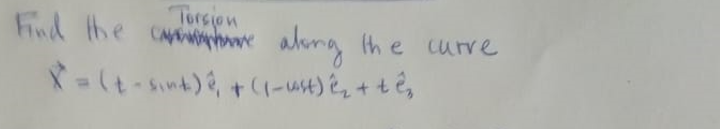 Find the Torsion along the curve
x⃗ = (t - sint) ê₁ + (1 - cost) ê₂ + t ê₃